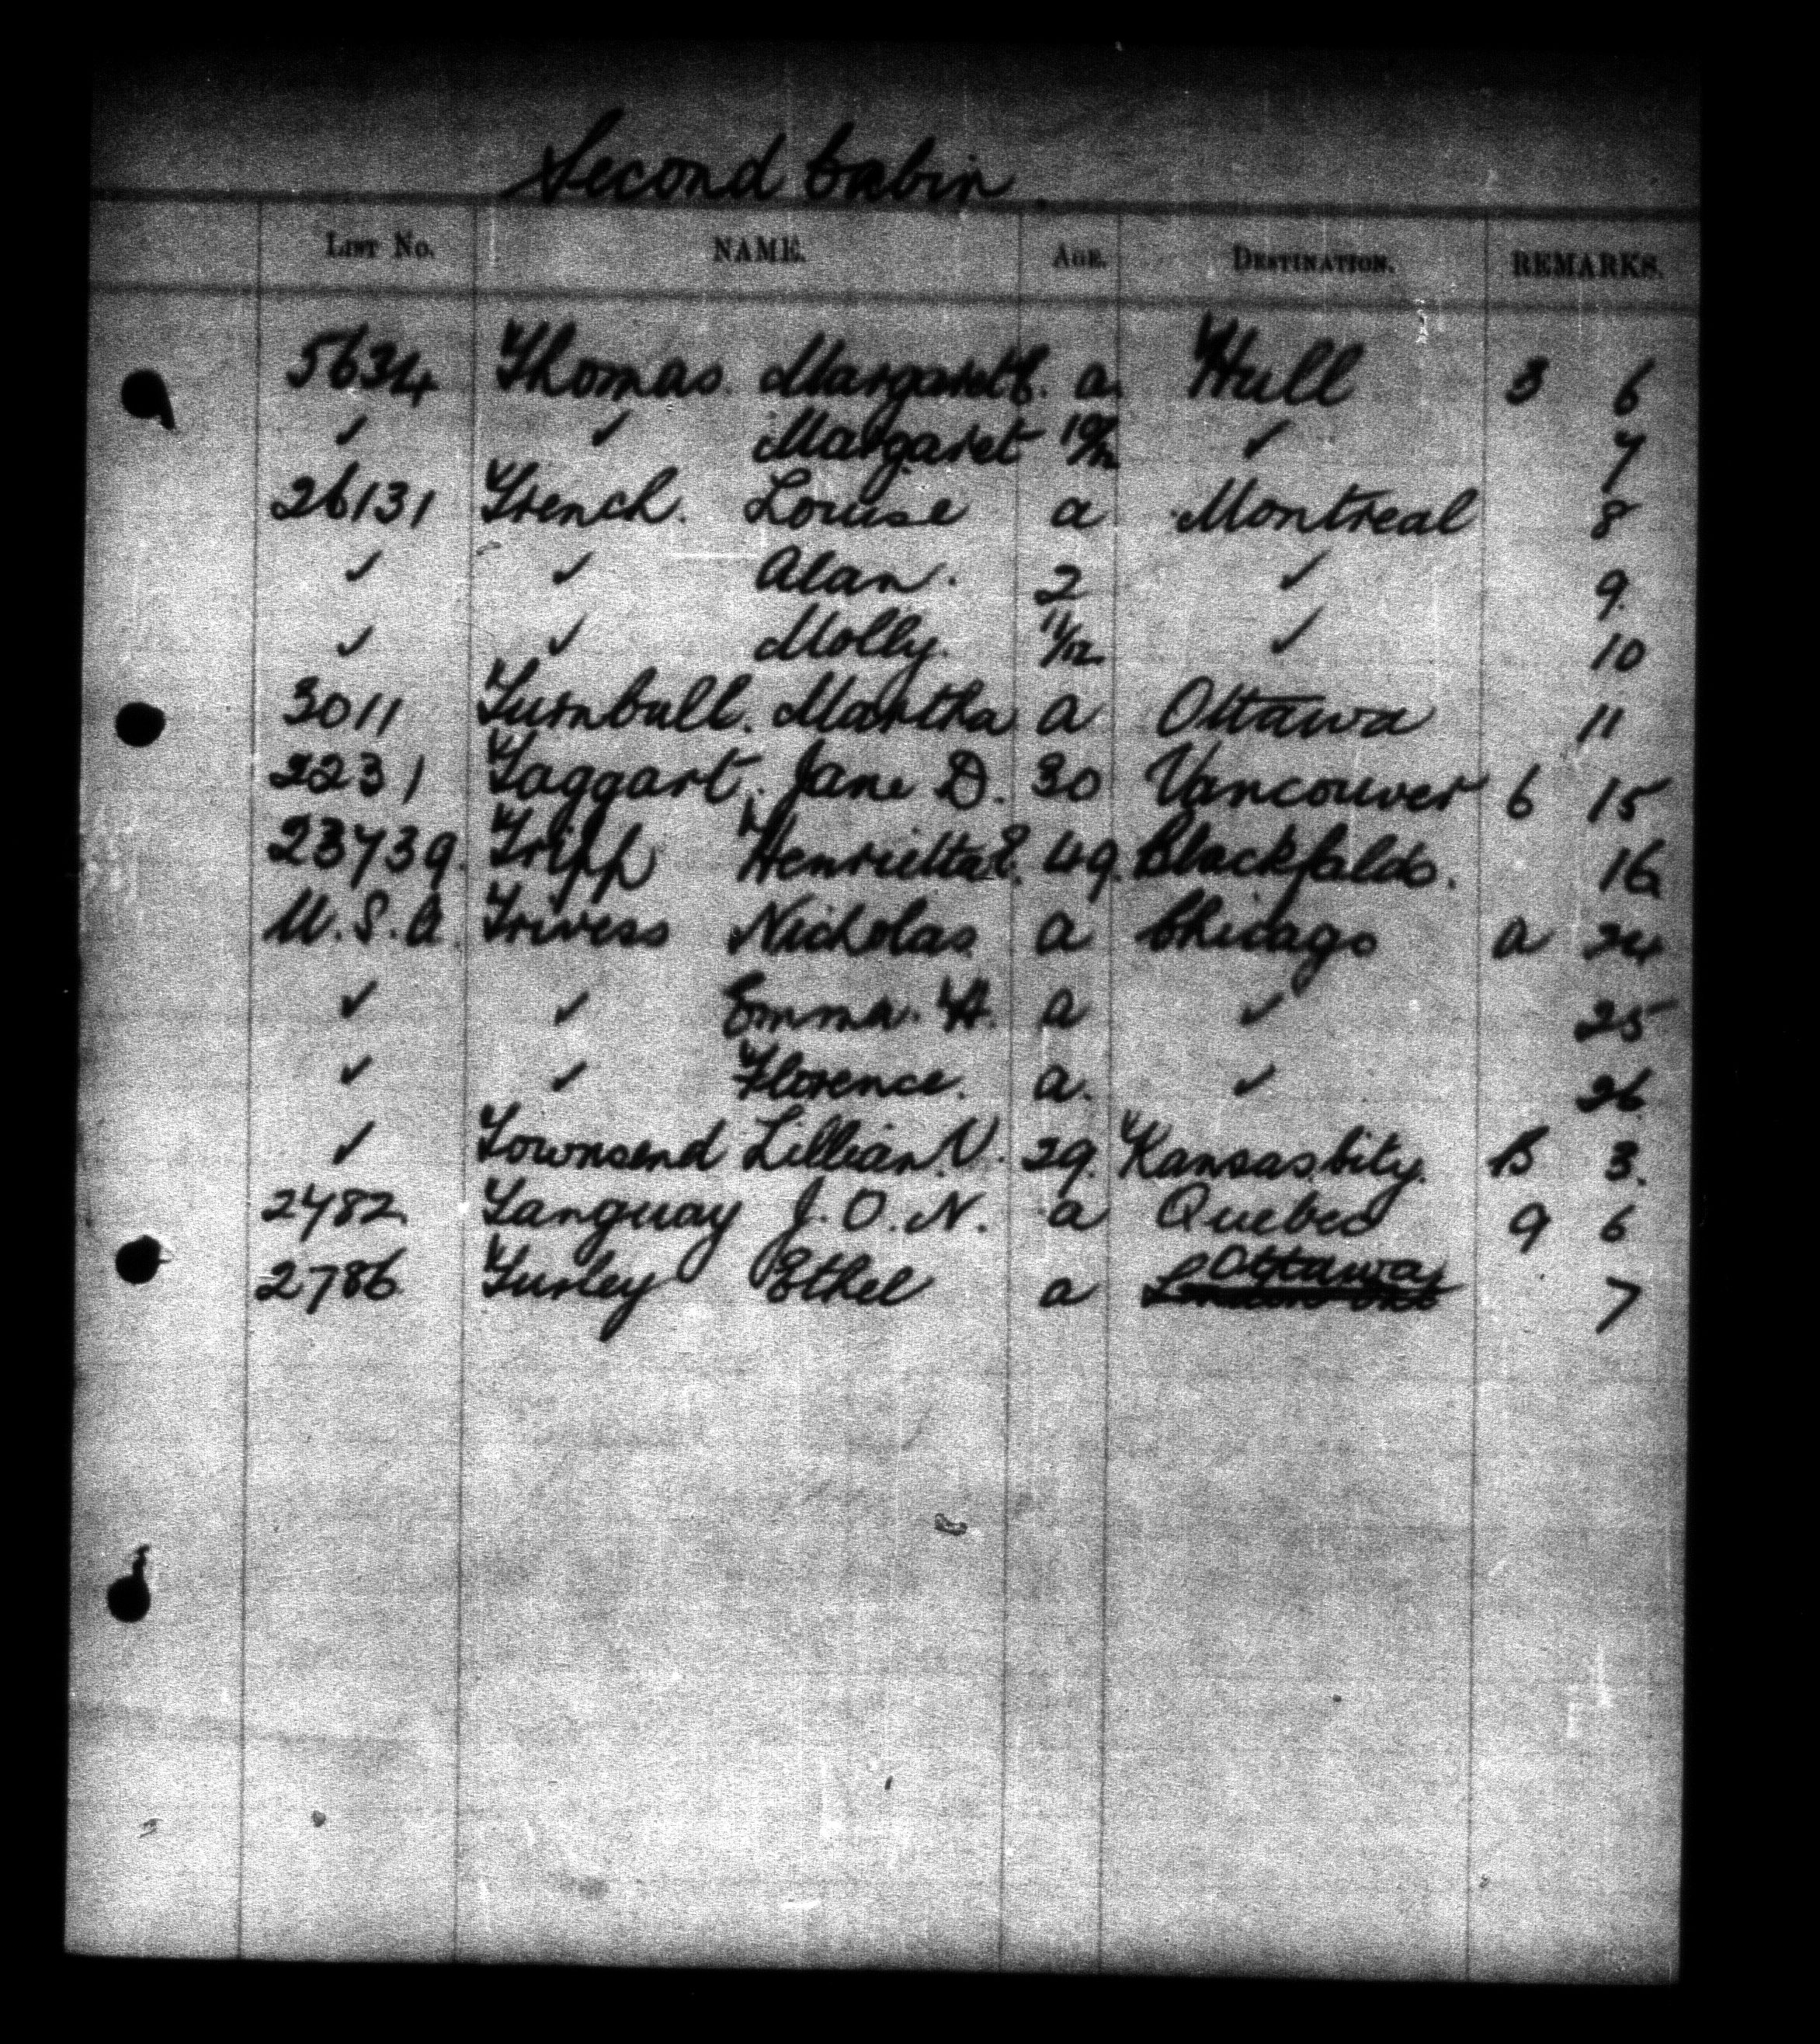 Second Cabin.
LIST NO. NAME. AGE. DESTINATION. REMARKS.
5634 Thomas. Margaret E. a. Hull 3 6
✓ ✓ Margaret 10/12 ✓ 7
26131 Trench. Louise a Montreal 8
✓ ✓ Alan. 2 ✓ 9.
✓ ✓ Molly. 11/12. ✓ 10
3011 Turnbull. Martha a Ottawa 11
2231 Taggart. Jane D. 30 Vancouver 6 15
23739. Tripp Henrietta E. 49. Blackfalds. 16
U.S.A. Trivess Nicholas a Chicago A 24
✓ ✓ Emma. H. a ✓ 25
✓ ✓ Florence. a. ✓ 26
✓ Townsend Lillian V. 29. Kansas City. B 3.
2482. Tanguay J. O. N. a Quebec 9 6
2786 Turley Ethel a Ottawa 7